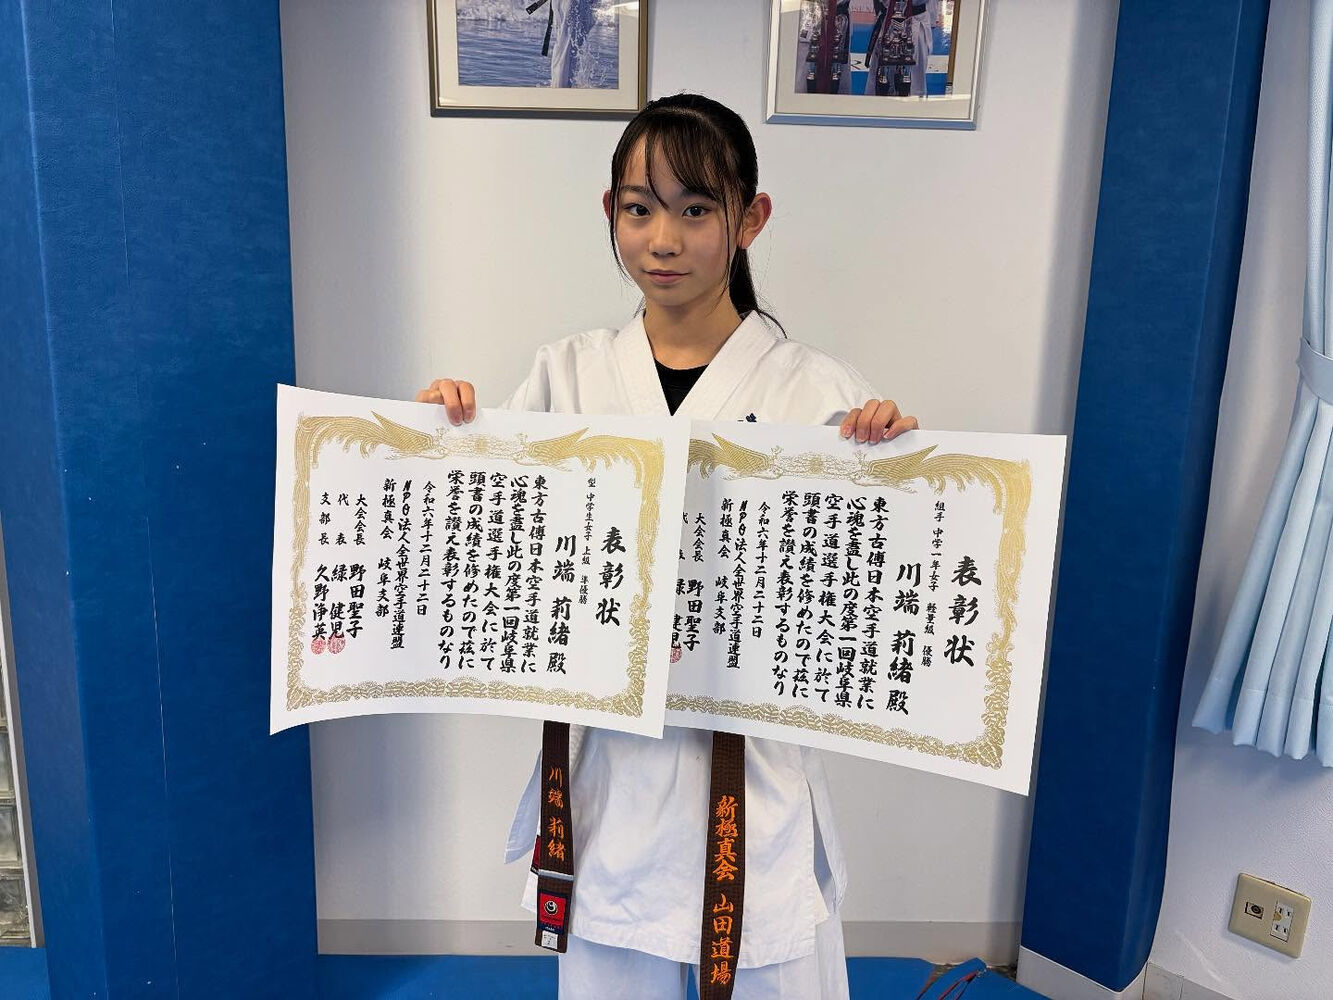 表彰状
型 中学生女子 上級 準優勝
川端 莉緒 殿
東方古傳日本空手道就業に
心魂を盡し此の度第一回岐阜県
空手道選手権大会に於て
頭書の成績を修めたので茲に
栄誉を讃え表彰するものなり
令和六年十二月二十二日
NPO法人全世界空手道連盟
新極真会 岐阜支部
大会会長 野田聖子
代表 緑 健児
支部長 久野浄英
表彰状
組手 中学一年女子 軽量級 優勝
川端 莉緒 殿
東方古傳日本空手道就業に
心魂を盡し此の度第一回岐阜県
空手道選手権大会に於て
頭書の成績を修めたので茲に
栄誉を讃え表彰するものなり
令和六年十二月二十二日
NPO法人全世界空手道連盟
新極真会 岐阜支部
大会会長 野田聖子
緑 健児
川端 莉緒
新極真会 山田道場